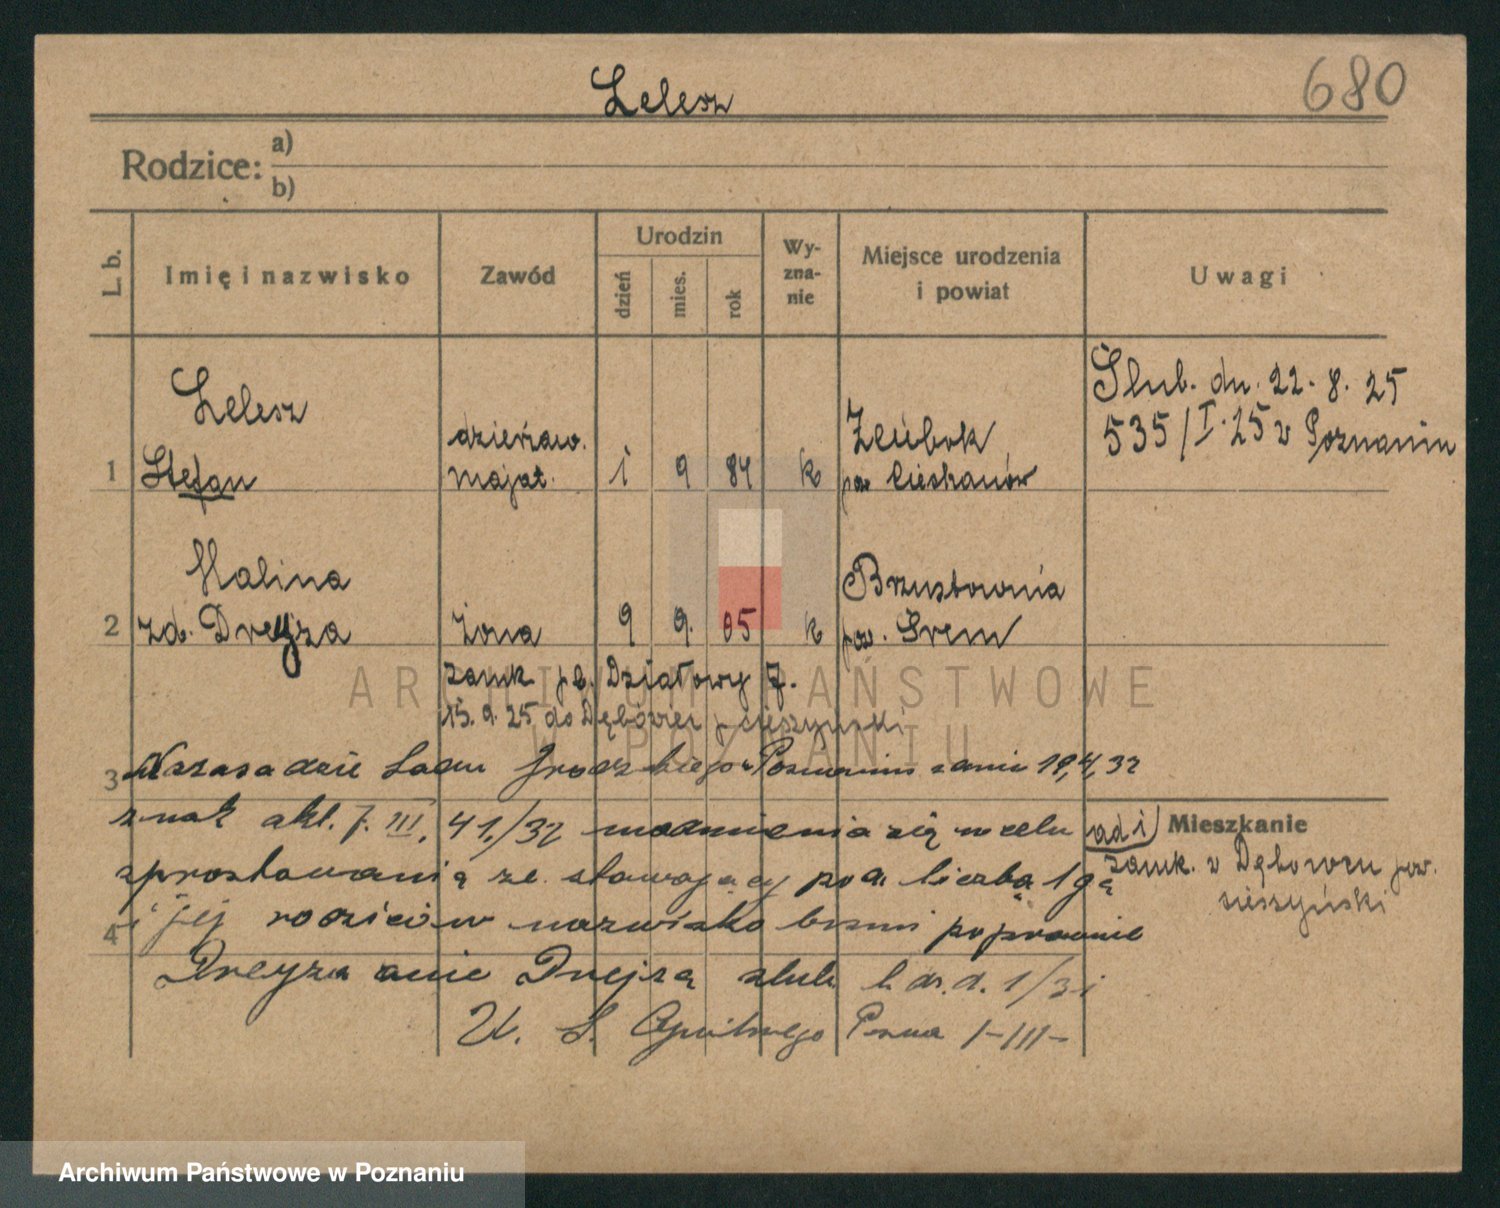 Lelesz
680
Rodzice:
a)
b)
L. b.
Imię i nazwisko
Zawód
Urodzin
dzień
mies.
rok
Wy-
zna-
nie
Miejsce urodzenia
i powiat
Uwagi
Ślub. dn. 22. 8. 25
535/I. 25 w Poznaniu
Lelesz
dzierżaw.
1 Stefan mająt. 1 9 84 k pow Cieshanów
Halina
Brzustownia
2 zd. Dreyza żona 9 9. 05 k pow. Śrem
zamk. pl. Działowy 7.
15. 9. 25 do Dębowiec p. cieszyński
3 Na zasadzie Sądu Grodzkiego w Poznaniu z dnia 19,4,32
znak akt. 7. III. 41./32 się w celu
sprostowania że stawający pod liczbą 1
4 i jej rodziców nazwisko brzmi poprawnie
Dreyza a nie Drejzą ślub 1/31
U. S. Poznań I-III-
ad 1) Mieszkanie
zamk. w Dębowcu pow.
cieszyński
ARCHIWUM PAŃSTWOWE
W POZNANIU
Archiwum Państwowe w Poznaniu